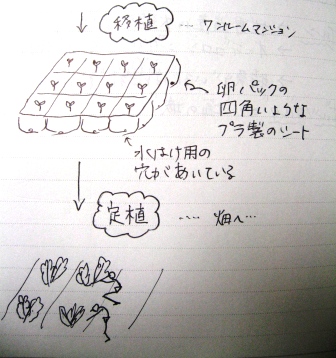 移植 ‥‥ ワンルームマンション
卵パックの
四角いような
プラ製のシート
水はけ用の
穴があいている
定植 ‥‥ 畑へ…